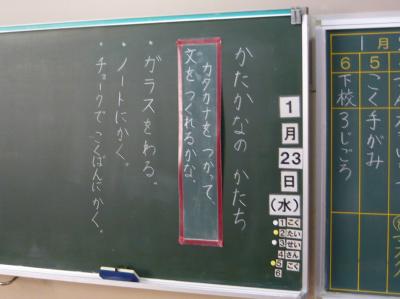 かたかなの かたち
カタカナを つかって、
文を つくれるかな。
・ガラスをわる。
・ノートにかく。
・チョークで こくばんにかく。
1
月
23
日
(水)
1 こく
2 たい
3 せい
4 さん
5 こく
6
1月
6 5
こく 手がみ
下校 3じごろ